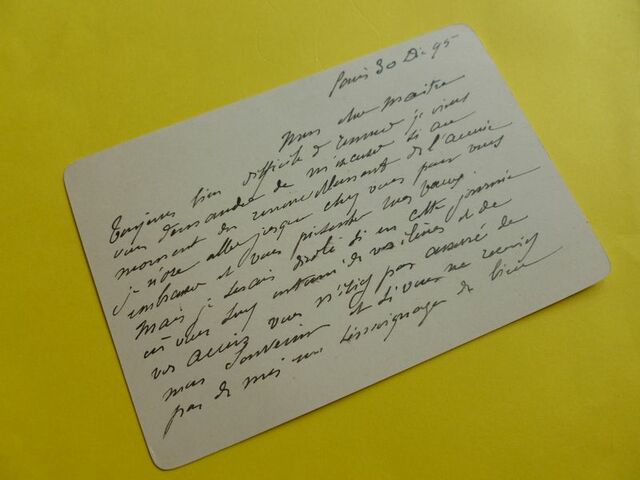 Paris 30 Dec 95
Mon cher Maitre
Toujours bien difficile de remuer je viens
vous demander de m'excuser si au
moment du renouvellement de l'année
je n'ose aller jusque chez vous pour vous
embrasser et vous présenter mes vœux.
Mais je serais désolé si en cette journée
où vous serez entouré de vos élèves et de
vos amis vous n'étiez pas assuré de
mon souvenir et si vous ne receviez
pas de moi un témoignage de bien